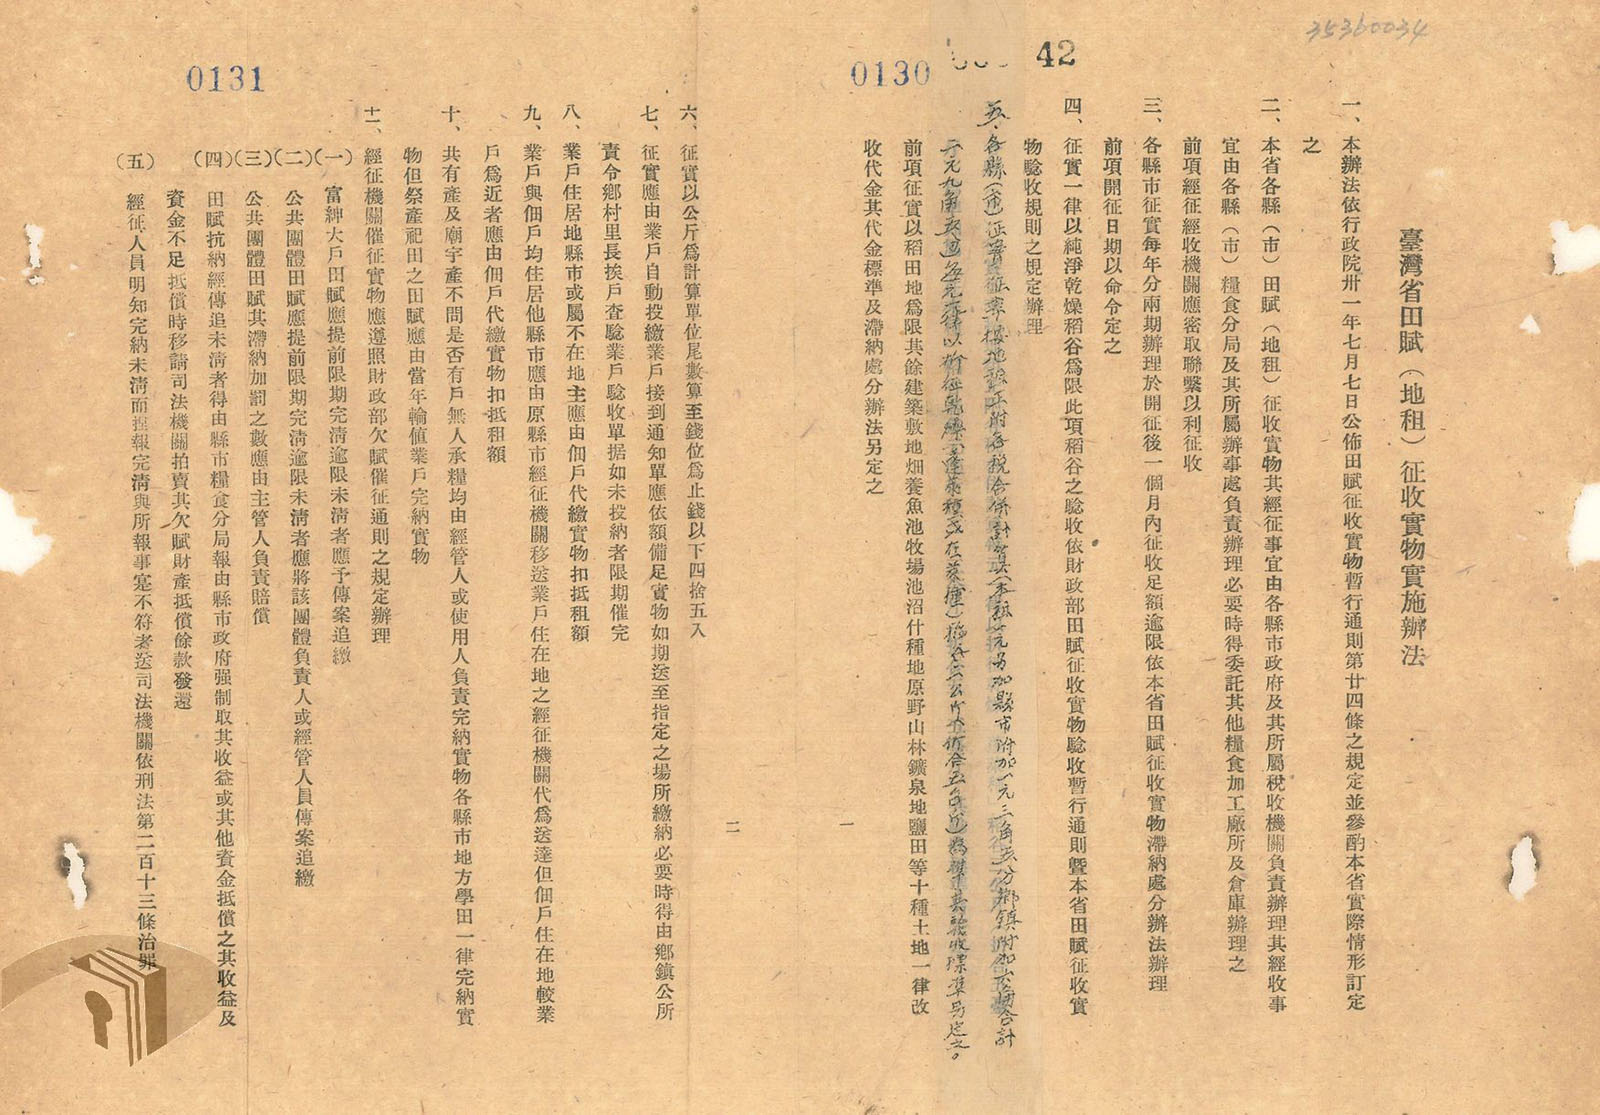 35360034
42
0130
臺灣省田賦（地租）征收實物實施辦法
一、本辦法依行政院卅一年七月七日公佈田賦征收實物暫行通則第廿四條之規定並參酌本省實際情形訂定
之
二、本省各縣（市）田賦（地租）征收實物其經征事宜由各縣市政府及其所屬稅收機關負責辦理其經收事
宜由各縣（市）糧食分局及其所屬辦事處負責辦理必要時得委託其他糧食加工廠所及倉庫辦理之
前項經征經收機關應密取聯繫以利征收
三、各縣市征實每年分兩期辦理於開征後一個月內征收足額逾限依本省田賦征收實物滯納處分辦法辦理
前項開征日期以命令定之
四、征實一律以純淨乾燥稻谷為限此項稻谷之驗收依財政部田賦征收實物驗收暫行通則曁本省田賦征收實
物驗收規則之規定辦理
五、各縣（市）征實征率按地租正附各稅合併計算（本租一元另加縣市附加一元三角五分鄉鎮附加 合計
二元九角五 ）每元 折征 蓬萊種或在萊種） 公斤 折合五台斤）為標準其驗收標準另定之。
前項征實以稻田地為限其餘建築敷地畑養魚池牧場池沼什種地原野山林鑛泉地鹽田等十種土地一律改
收代金其代金標準及滯納處分辦法另定之
一
0131
二
六、征實以公斤為計算單位尾數算至錢位為止錢以下四捨五入
七、征實應由業戶自動投繳業戶接到通知單應依額備足實物如期送至指定之場所繳納必要時得由鄉鎮公所
責令鄉村里長挨戶查驗業戶驗收單据如未投納者限期催完
八、業戶住居地縣市或屬不在地主應由佃戶代繳實物扣抵租額
九、業戶與佃戶均住居他縣市應由原縣市經征機關移送業戶住在地之經征機關代為送達但佃戶住在地較業
戶為近者應由佃戶代繳實物扣抵租額
十、共有產及廟宇產不問是否有戶無人承糧均由經管人或使用人負責完納實物各縣市地方學田一律完納實
物但祭產祀田之田賦應由當年輪值業戶完納實物
十一、經征機關催征實物應遵照財政部欠賦催征通則之規定辦理
（一）富紳大戶田賦應提前限期完清逾限未清者應予傳案追繳
（二）公共團體田賦應提前限期完清逾限未清者應將該團體負責人或經管人員傳案追繳
（三）公共團體田賦其滯納加罰之數應由主管人負責賠償
（四）田賦抗納經傳追未清者得由縣市糧食分局報由縣市政府强制取其收益或其他資金抵償之其收益及
資金不足抵償時移請司法機關拍賣其欠賦財產抵償餘款發還
（五）經征人員明知完納未清而捏報完清與所報事寔不符者送司法機關依刑法第二百十三條治罪